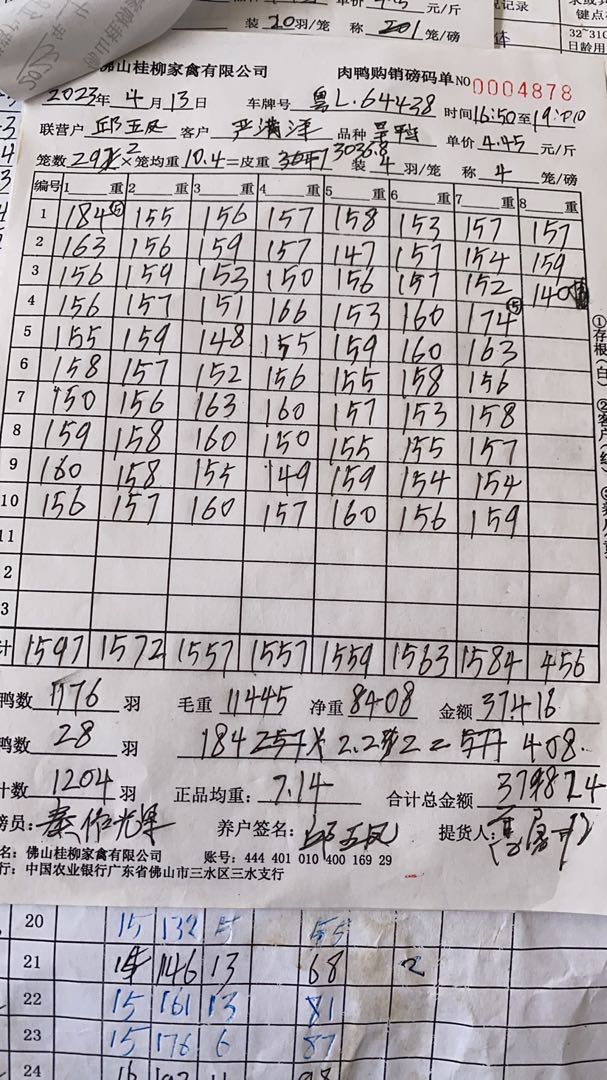 装20羽/笼 称201笼/磅
佛山桂柳家禽有限公司 肉鸭购销磅码单 NO 0004878
2023年4月13日 车牌号 粤L.64438 时间16:50至19:00
联营户 邱五凤 客户 严满洋 品种 单价4.45元/斤
笼数 292 ×2笼均重10.4=皮重 3036.8 装4羽/笼 称4笼/磅
编号 1 重 2 重 3 重 4 重 5 重 6 重 7 重 8 重
1 184⑤ 155 156 157 158 153 157 157
2 163 156 159 157 147 157 154 159
3 156 159 153 150 156 157 152 140
4 156 157 151 166 153 160 174⑤
5 155 159 148 155 159 160 163
6 158 157 152 156 155 158 156
7 150 156 163 160 157 153 158
8 159 158 160 150 155 155 157
9 160 158 155 149 159 154 154
10 156 157 160 157 160 156 159
11
2
3
计 1597 1572 1557 1557 1559 1563 1584 456
鸭数 1176 羽 毛重 11445 净重 8408 金额 37416
鸭数 28 羽 408
计数 1204 羽 正品均重: 7.14 合计总金额 37824
磅员: 养户签名: 邱五凤 提货人:
名: 佛山桂柳家禽有限公司 账号: 444 401 010 400 169 29
行: 中国农业银行广东省佛山市三水区三水支行
①存根(白)
20 15 132 5 55
21 15 146 13 68 2
22 15 161 13 81
23 15 176 6 87
24